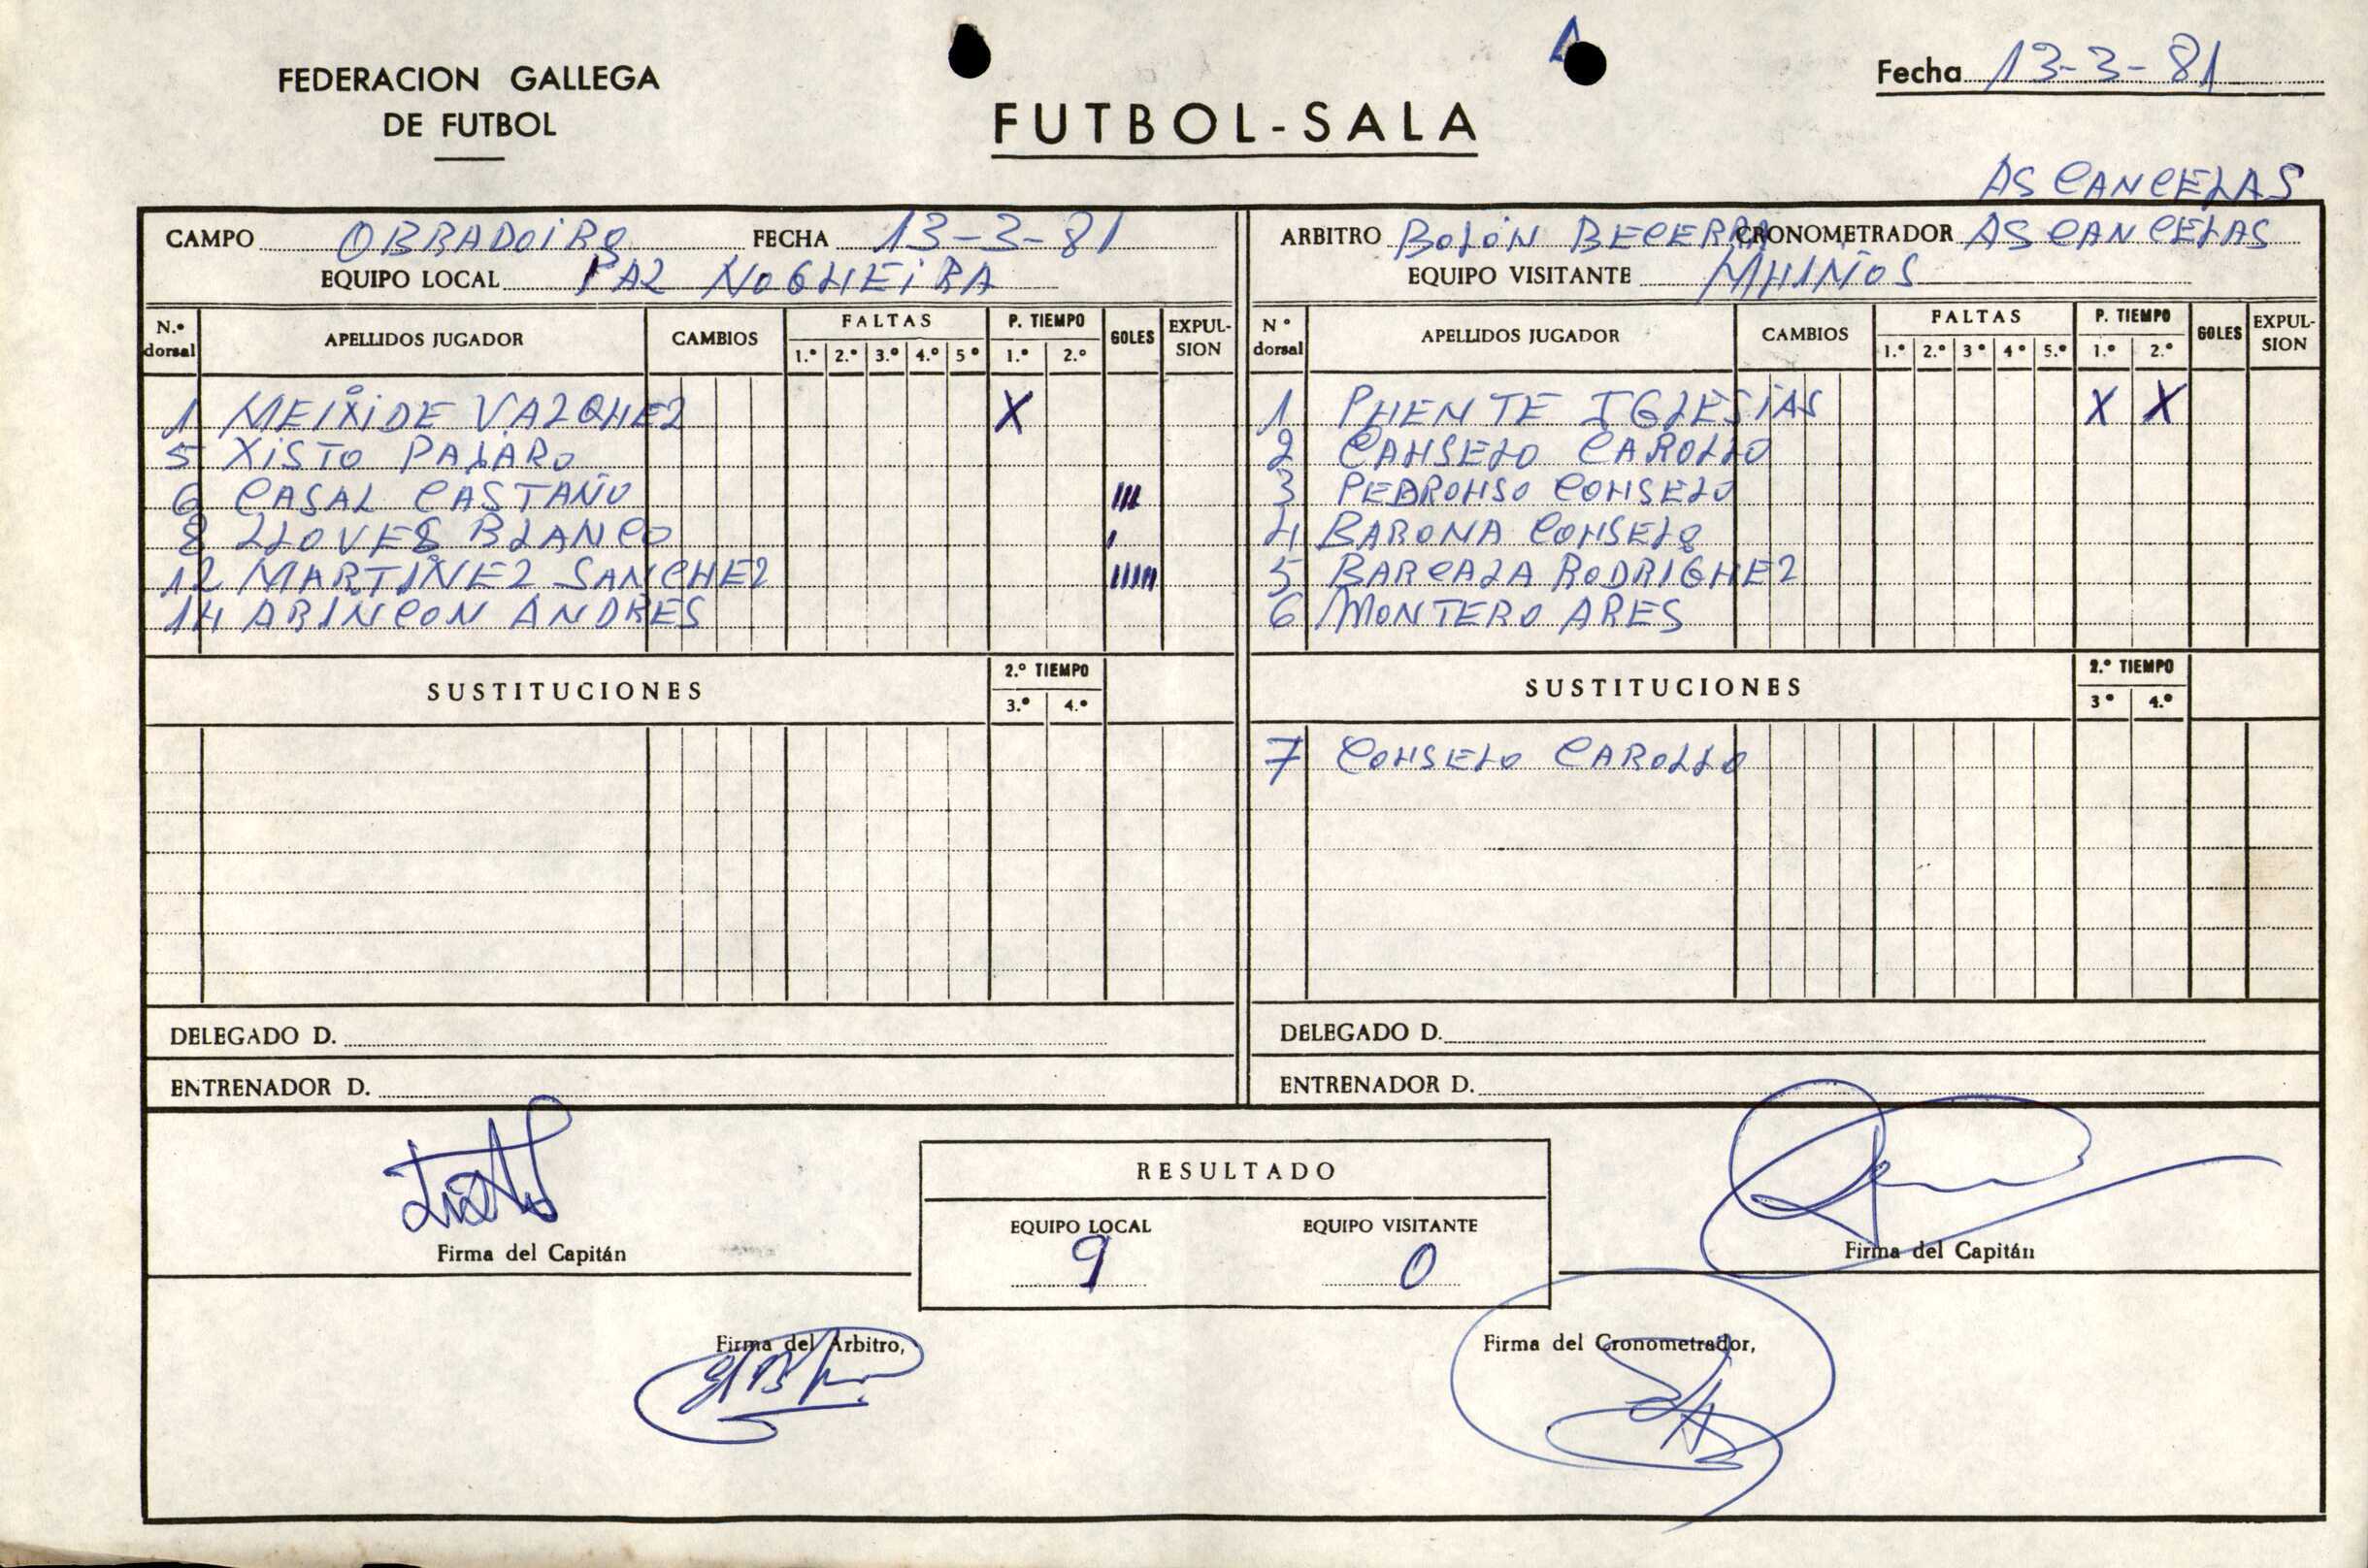 FEDERACION GALLEGA
DE FUTBOL
FUTBOL-SALA
Fecha 13-3-81
AS CANCELAS
CAMPO OBRADOIRO FECHA 13-3-81
EQUIPO LOCAL PAZ NOGUEIRA
ARBITRO BOLÓN BECERRA CRONOMETRADOR AS CANCELAS
EQUIPO VISITANTE MUIÑOS
N.º dorsal APELLIDOS JUGADOR CAMBIOS FALTAS 1.º 2.º 3.º 4.º 5º P. TIEMPO 1.º 2.º GOLES EXPUL-SION
1 MEIXIDE VAZQUEZ X
5 XISTO PAJARO
6 CASAL CASTAÑO III
8 LLOVES BLANCO I
12 MARTINEZ SANCHEZ IIIII
14 ARINCON ANDRES
SUSTITUCIONES 2.º TIEMPO 3.º 4.º
DELEGADO D.
ENTRENADOR D.
Nº dorsal APELLIDOS JUGADOR CAMBIOS FALTAS 1.º 2.º 3º 4º 5.º P. TIEMPO 1.º 2.º GOLES EXPUL-SION
1 PUENTE IGLESIAS X X
2 CAUSELO CAROLLO
3 PEDROUSO COUSELO
4 BARONA COUSELO
5 BARCALA RODRIGUEZ
6 MONTERO ARES
SUSTITUCIONES 2.º TIEMPO 3º 4.º
7 COUSELO CAROLLO
DELEGADO D.
ENTRENADOR D.
Firma del Capitán
RESULTADO
EQUIPO LOCAL EQUIPO VISITANTE
9 0
Firma del Capitán
Firma del Arbitro,
Firma del Cronometrador,